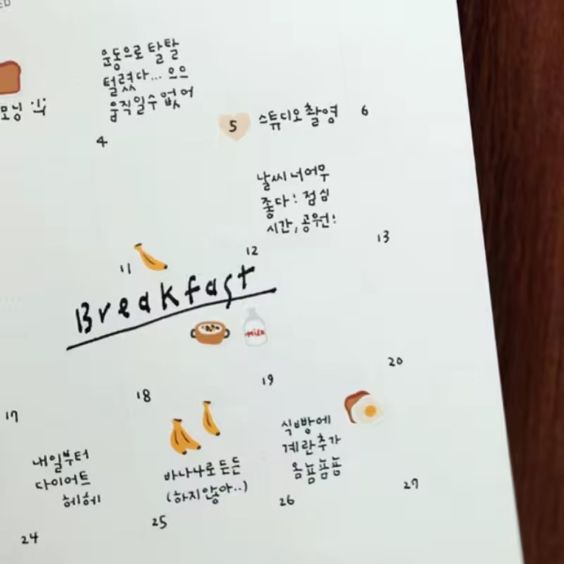 운동으로 탈탈
털렸다... 으으
움직일수 없어
모닝
4
5
스튜디오 촬영
6
날씨 너어무
좋다! 점심
시간, 공원!
11
12
13
Breakfast
milk
17
18
19
20
내일부터
다이어트
헤헤
바나나로 든든
(하지않아..)
식빵에
계란추가
욤뇸뇸뇸
24
25
26
27